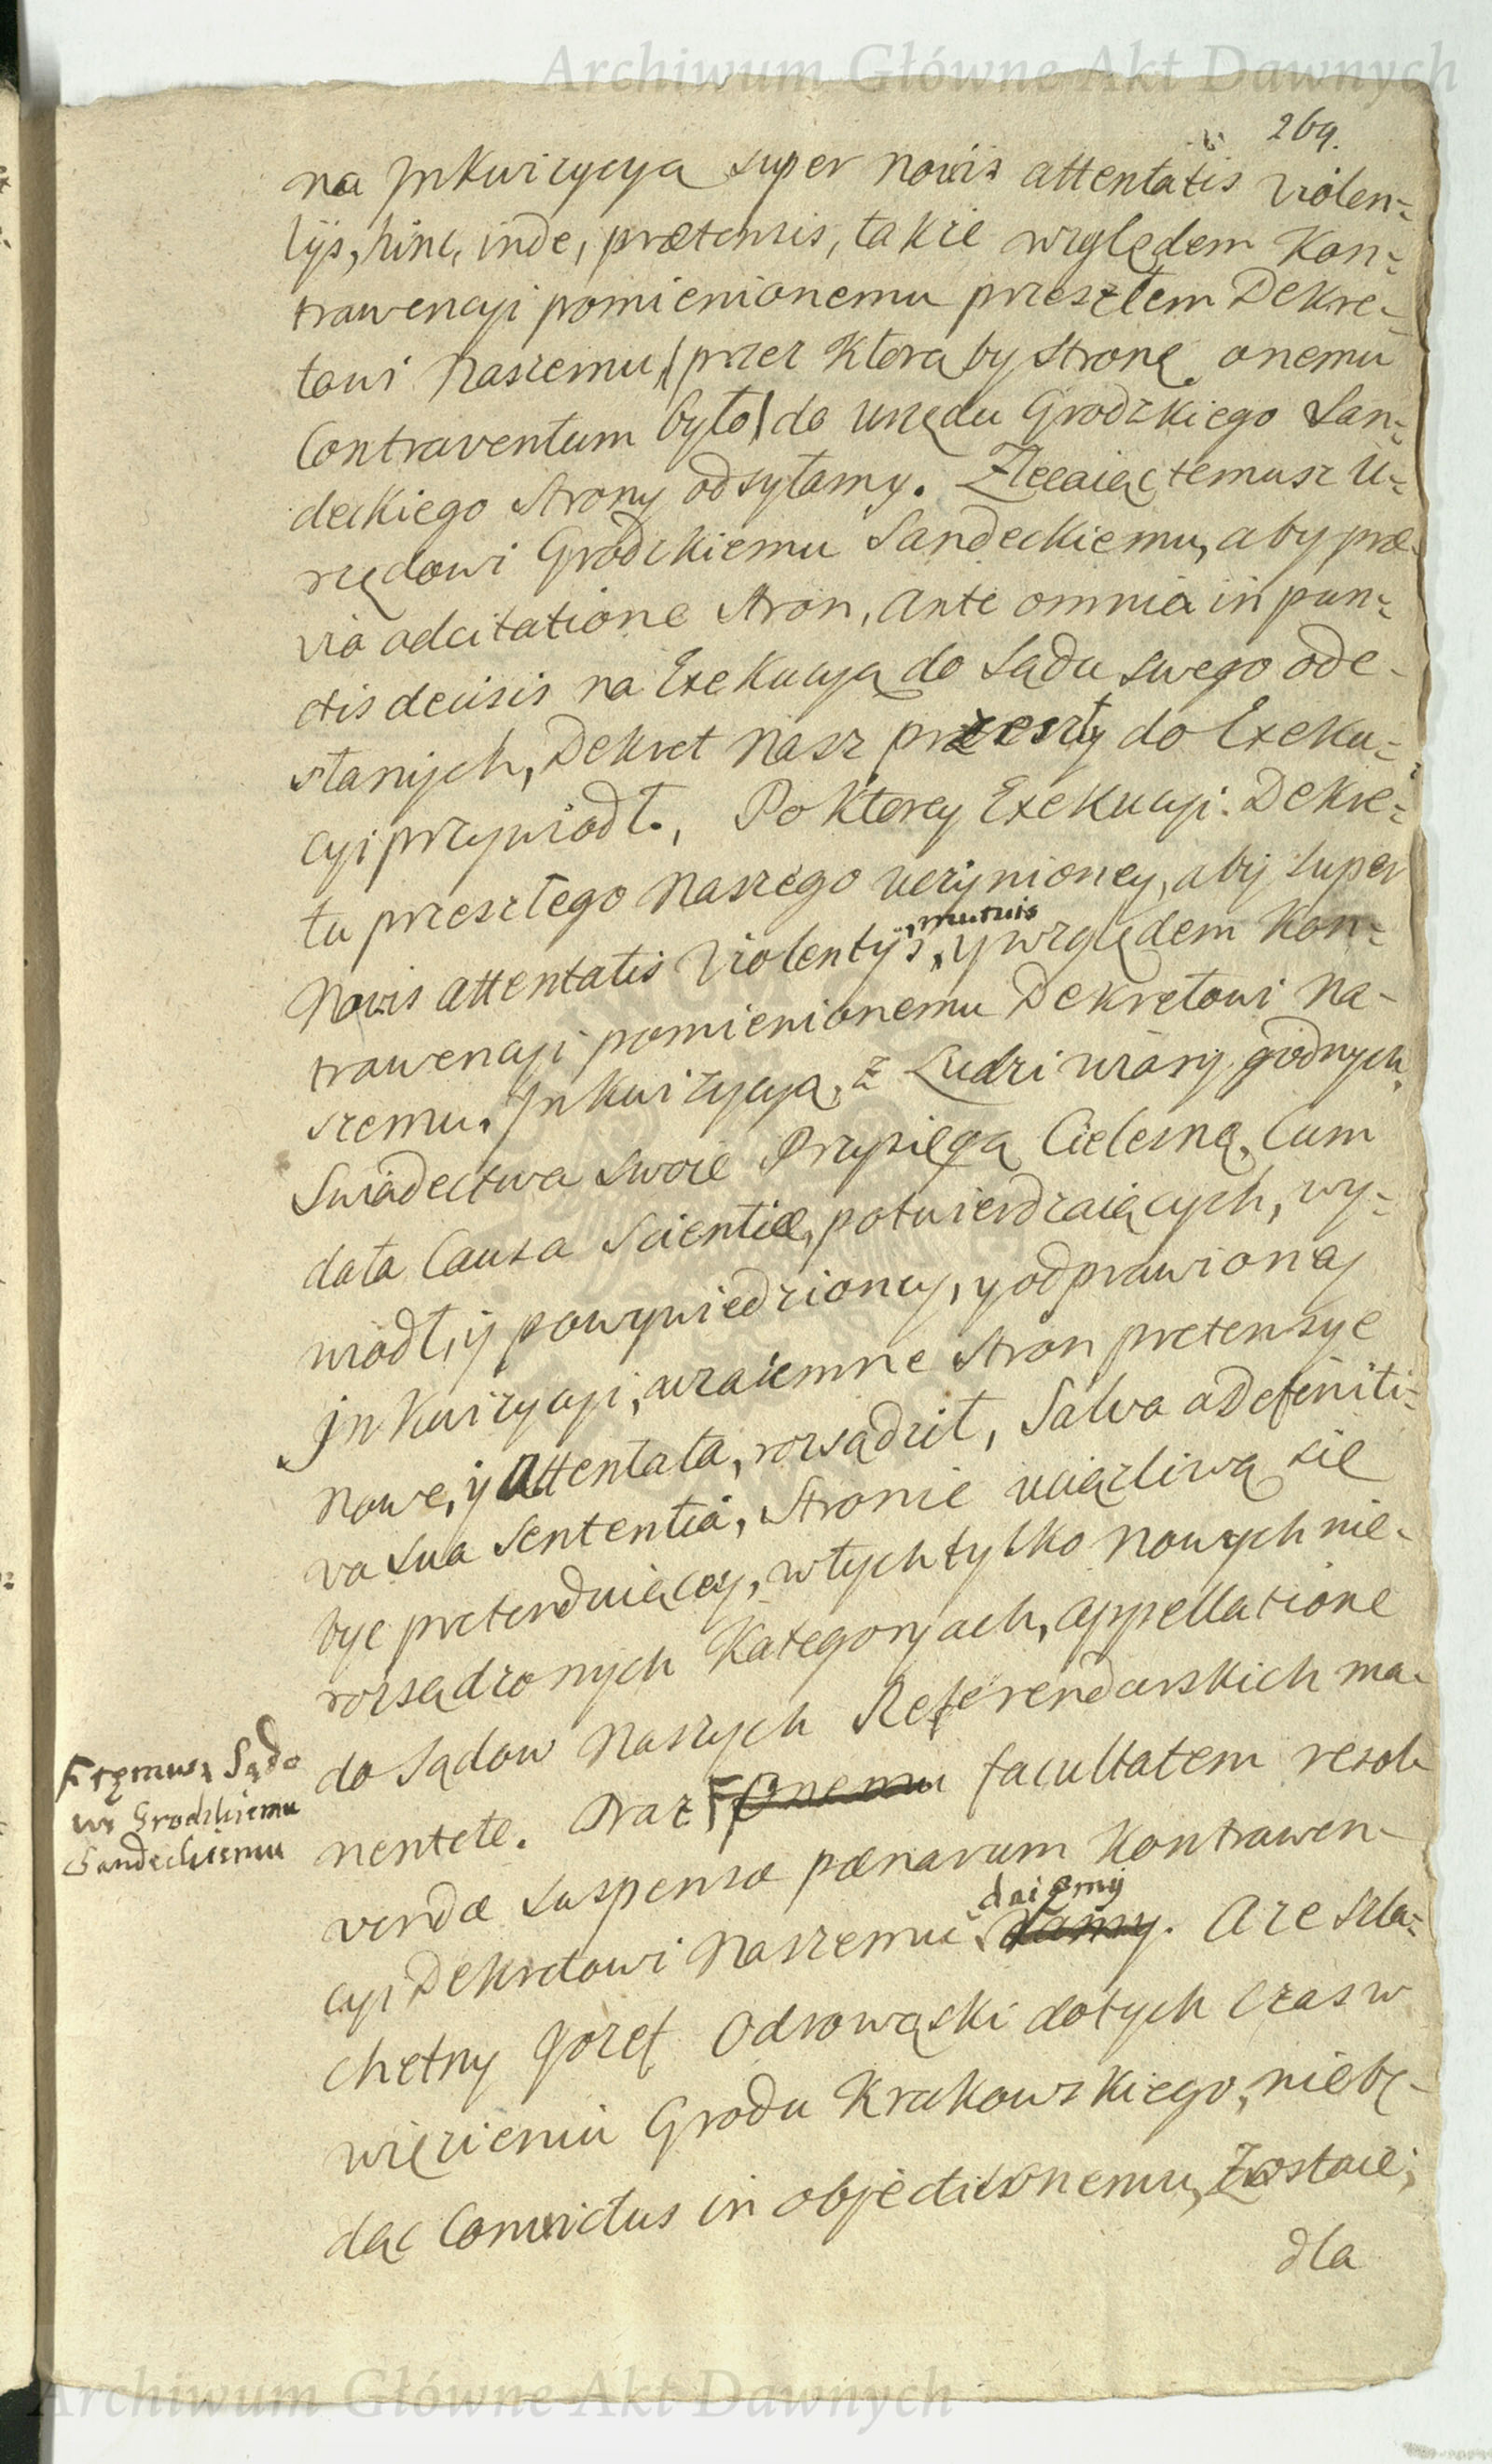 Archiwum Główne Akt Dawnych
269.
na Jnkwizycya super novis attentatis violen=
tijs, hinc, inde, prætensis, takze względem Kon=
trawencyi pomienionemu przeszłem Dekre=
towi Naszemu /przez ktorąby stronę onemu
Contraventum było/ do urzędu Grodzkiego San=
deckiego strony odsyłamy. Zlecaiąc temusz U=
rzędowi Grodzkiemu Sandeckiemu, aby præ=
via adcitatione stron, ante omnia in pun=
ctis decisis na Exekucyą do Sądu swego ode=
słanijch, Dekret Nasz przeszły do Exeku=
cyi przywiodł., Po ktorey Exekucyi Dekre=
tu przeszłego Naszego uczynioney, abij super
Novis attentatis Violentijs, mutuis y względem Kon=
trawencyi pomienionemu Dekretowi Na=
szemu, Jnkwizycyą, z Ludzi wiary godnych,
Swiadectwa swoie Przysięgą Cielesną, Cum
data Causa Scientiæ, potwierdzaiących, wy=
wiodł, ij po wywiedzioney, y odprawioney
Jnkwizycyi, wzaiemne stron pretensye
nowe, y Attentata, rozsądził, Salva a definiti=
va sua Sententia, Stronie uciązliwą się
byc pretenduiącey, w tych tylko nowych nie=
rozsądzonych Kategoryach, appellatione
do Sądow Naszych Referendarskich ma=
nente. Oraz F onemu facultatem resol=
F Temuz Sądo
wi Grodzkiemu
Sandeckiemu
vendæ suspensæ pænarum Kontrawen=
cyi Dekretowi Naszemu daiemy damy. A ze szla=
chetny Jozef Odrowąski dotych czas w
więzieniu Grodu Krakowskiego, niebę=
dąc Convictus in objectis onemu, zostaie;
dla
Archiwum Główne Akt Dawnych